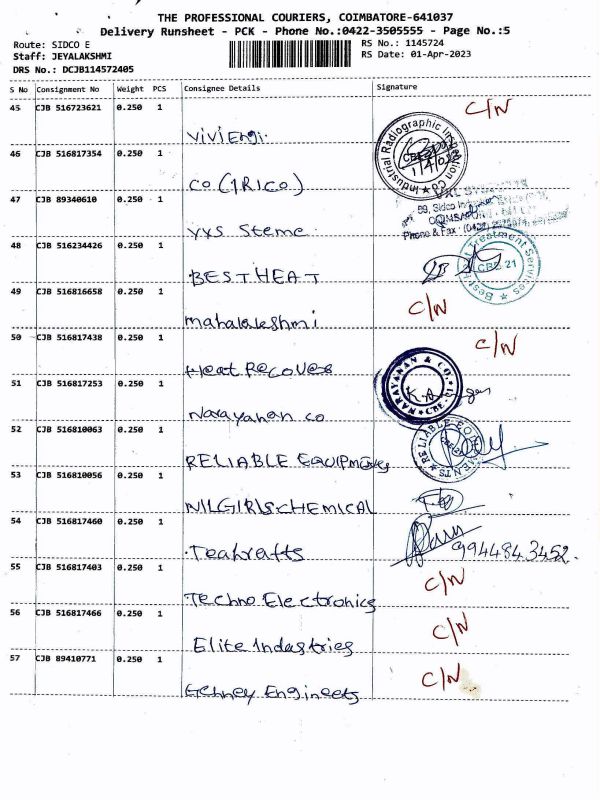 THE PROFESSIONAL COURIERS, COIMBATORE-641037
Delivery Runsheet - PCK - Phone No.:0422-3505555 - Page No.:5
Route: SIDCO E RS No.: 1145724
Staff: JEYALAKSHMI RS Date: 01-Apr-2023
DRS No.: DCJB114572405
S No Consignment No Weight PCS Consignee Details Signature
45 CJB 516723621 0.250 1 C/N
ViViEngi.
46 CJB 516817354 0.250 1 Industrial Radiographic Inspection Co
CO (IRICO)
47 CJB 89340610 0.250 1
99, Sidco
Phone & Fax
VXS Steme
48 CJB 516234426 0.250 1 Best Heat Treatment Services CBE 21
BEST HEAT
49 CJB 516816658 0.250 1 C/N
mahalakeshmi
50 CJB 516817438 0.250 1 C/N
Heat Recover
51 CJB 516817253 0.250 1 NARAYANAN & CO. CBE-21
Narayanan co
52 CJB 516810063 0.250 1 RELIABLE EQUIPMENTS
RELIABLE EQUIPMENTS
53 CJB 516810056 0.250 1
NILGIRIS CHEMICAL
54 CJB 516817460 0.250 1
Teakrafts 9944843452.
55 CJB 516817403 0.250 1 C/N
Techno Electronics
56 CJB 516817466 0.250 1 C/N
Elite Indastries
57 CJB 89410771 0.250 1 C/N
Engineers